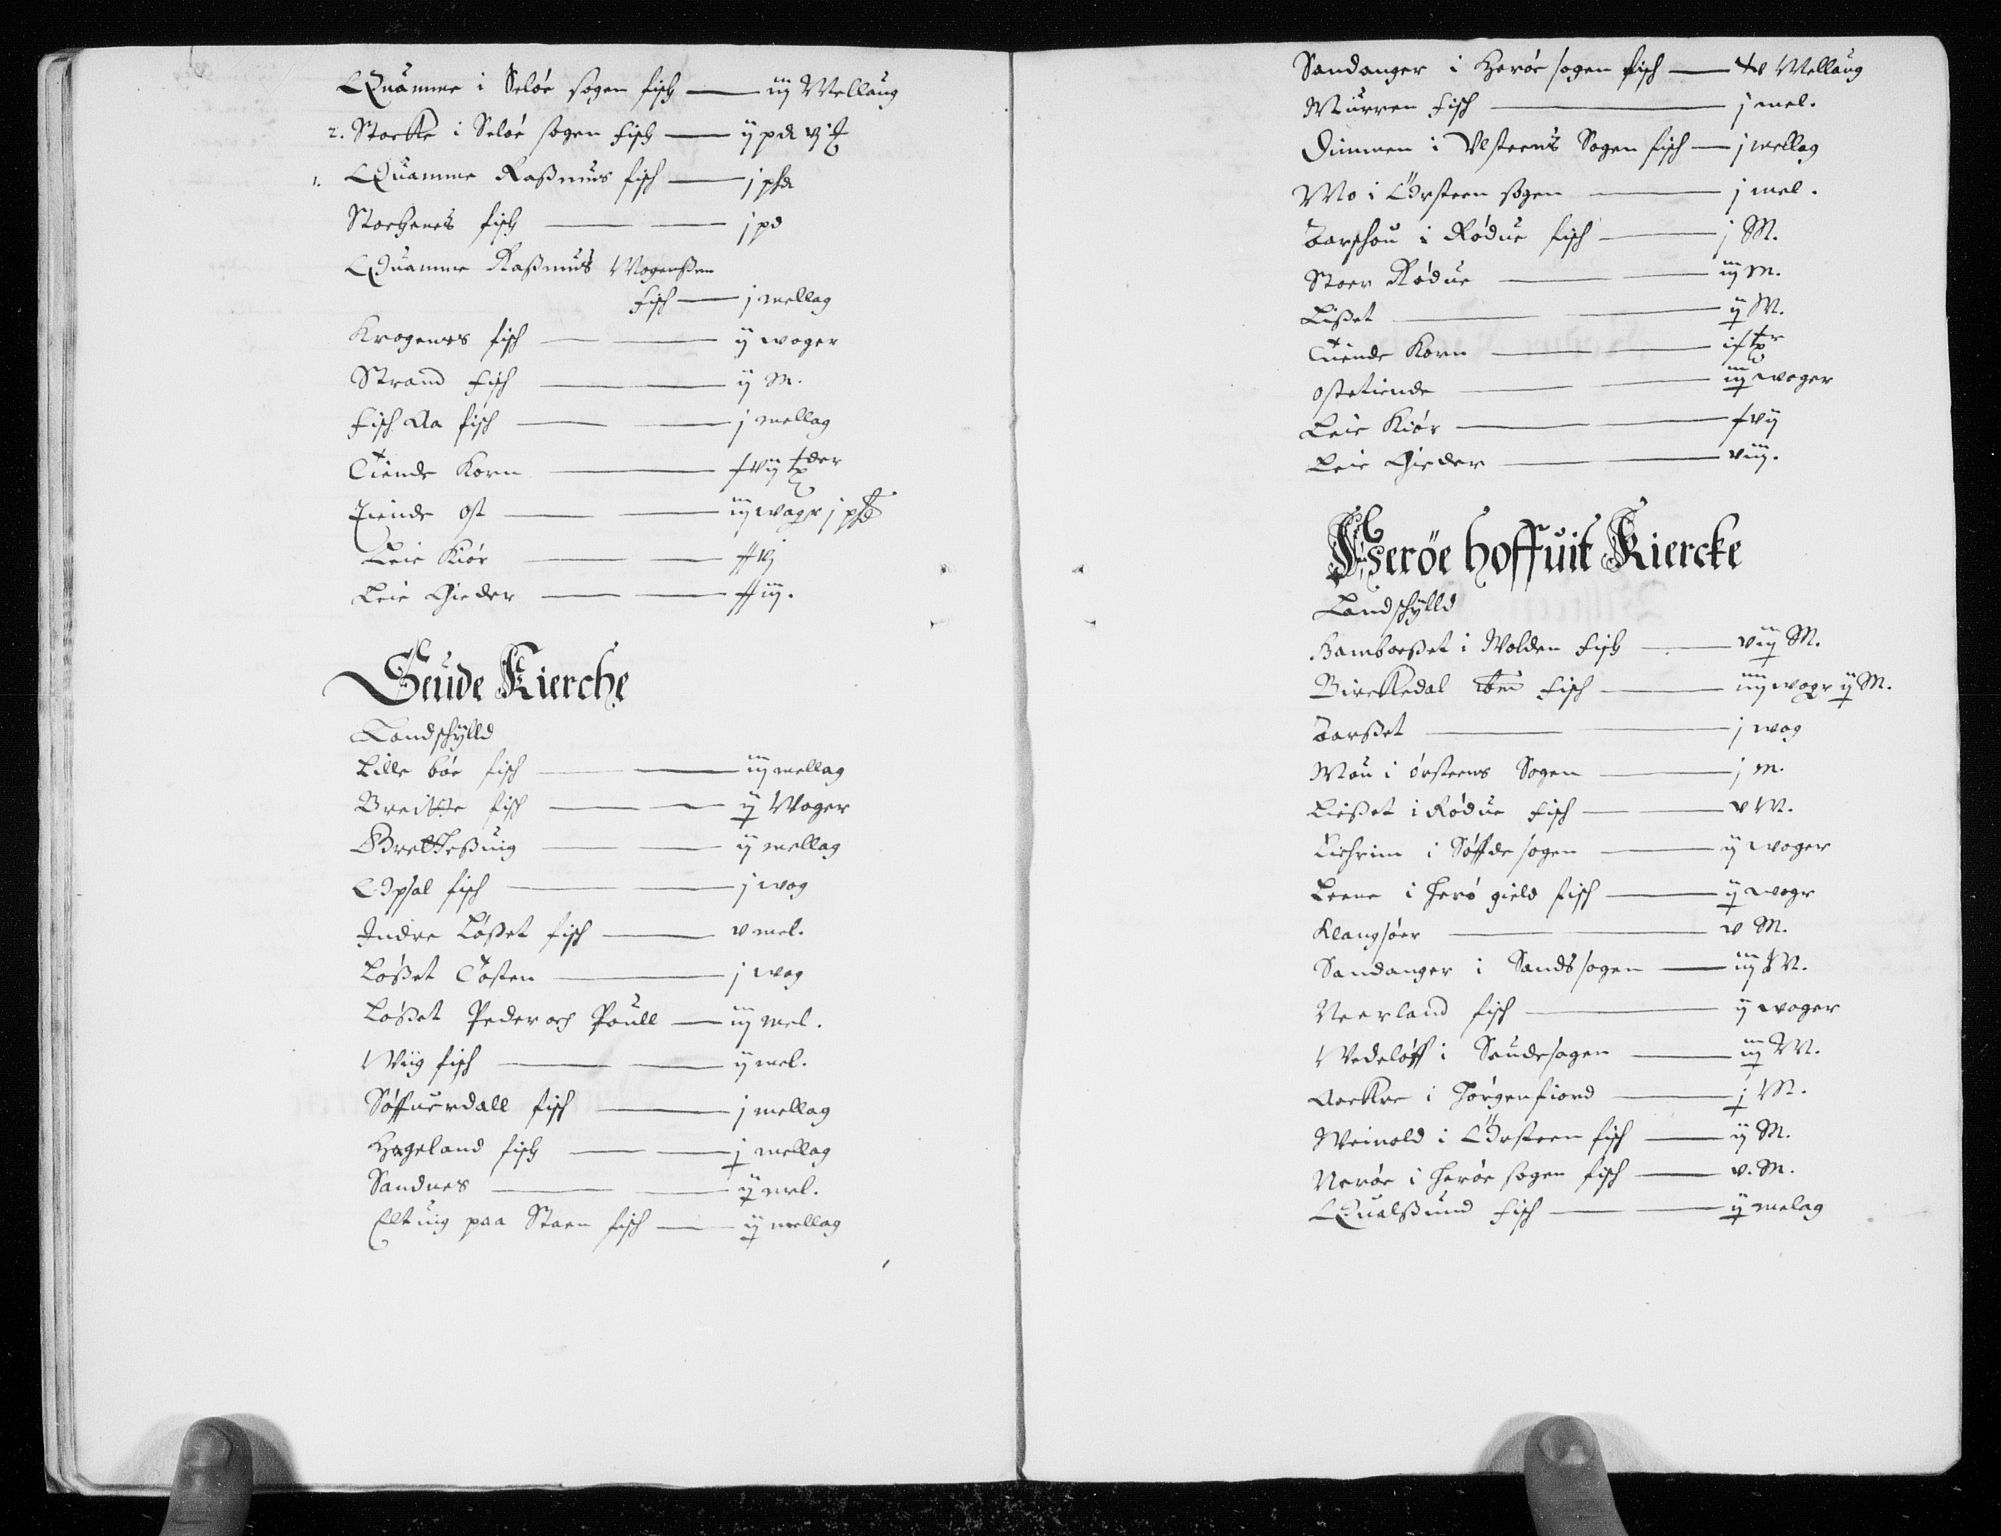 Quamme i Seløe sogen fisch — iij Mellaug
2. Stocke i Seløe sogen fisch — ij pd vj
1. Quamme Raßmus fisch — j pd
Storhenes fisch — j pd
Quamme Raßmus Mogenßen
fisch — j mellag
Krogenes fisch — ij woger
Strand fisch — ij M.
Fisch Aa fisch — j mellag
Tiende Korn
Tiende ost — iij woger j pd
Leie Kiør
Leie Gieder
Seude Kierche
Landschylld
Lille bøe fisch — iij mellag
Breitte fisch — ij Woger
Brettesuig — ij mellag
Opsal fisch — j wog
Indre Løßet fisch — v mel.
Løßet Tosten — j wog
Løßet Peder och Pouell — iij mel.
Wiig fisch — ij mel.
Søffuerdall fisch — j mellag
Hageland fisch — j mellag
Sandnes — ij mel.
Eltuig paa Staen fisch — ij mellag
Sandanger i Herøe sogen fisch — Mellaug
Murren fisch — j mel.
Dimmen i Ulsteens Sogen fisch — j mellag
Mo i Ørsteen sogen — j mel.
Barschou i Rødue fisch — j M.
Stoer Rødue — iij M.
Lißet — ij M.
Tiende Korn
Ostetiende — iiij woger
Leie Kiør
Leie Gieder — viij.
Herøe hoffuit Kiercke
Landschylld
Hamborßet i Wolden fisch — viij M.
Birckedal ibm fisch — iiij wogr ij M.
Barßet — j wog
Mou i ørsteens Sogen — j M.
Lißet i Rødue fisch — v M.
Lichrim i Søffde sogen — ij woger
Leene i Herø gield fisch — ij wogr
Klangsøer — v M.
Sandanger i Sands sogen — iij M.
Neerland fisch — ij woger
Wedeløff i Seudesogen — iij M.
Aackre i Jørgenfiord — j M.
Weinold i Ørsteen fisch — ij M.
Nerøe i Herøe sogen fisch — v. M.
Qualßund fisch — ij melag